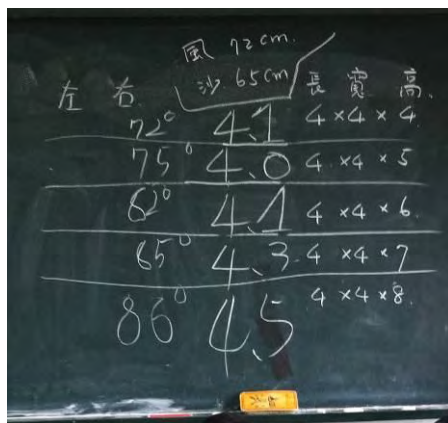 風 72cm.
沙. 65cm
左 右 長 寬 高
72° 4.1 4×4×4
75° 4.0 4×4×5
82° 4.1 4×4×6
85° 4.3 4×4×7
86° 4.5 4×4×8.